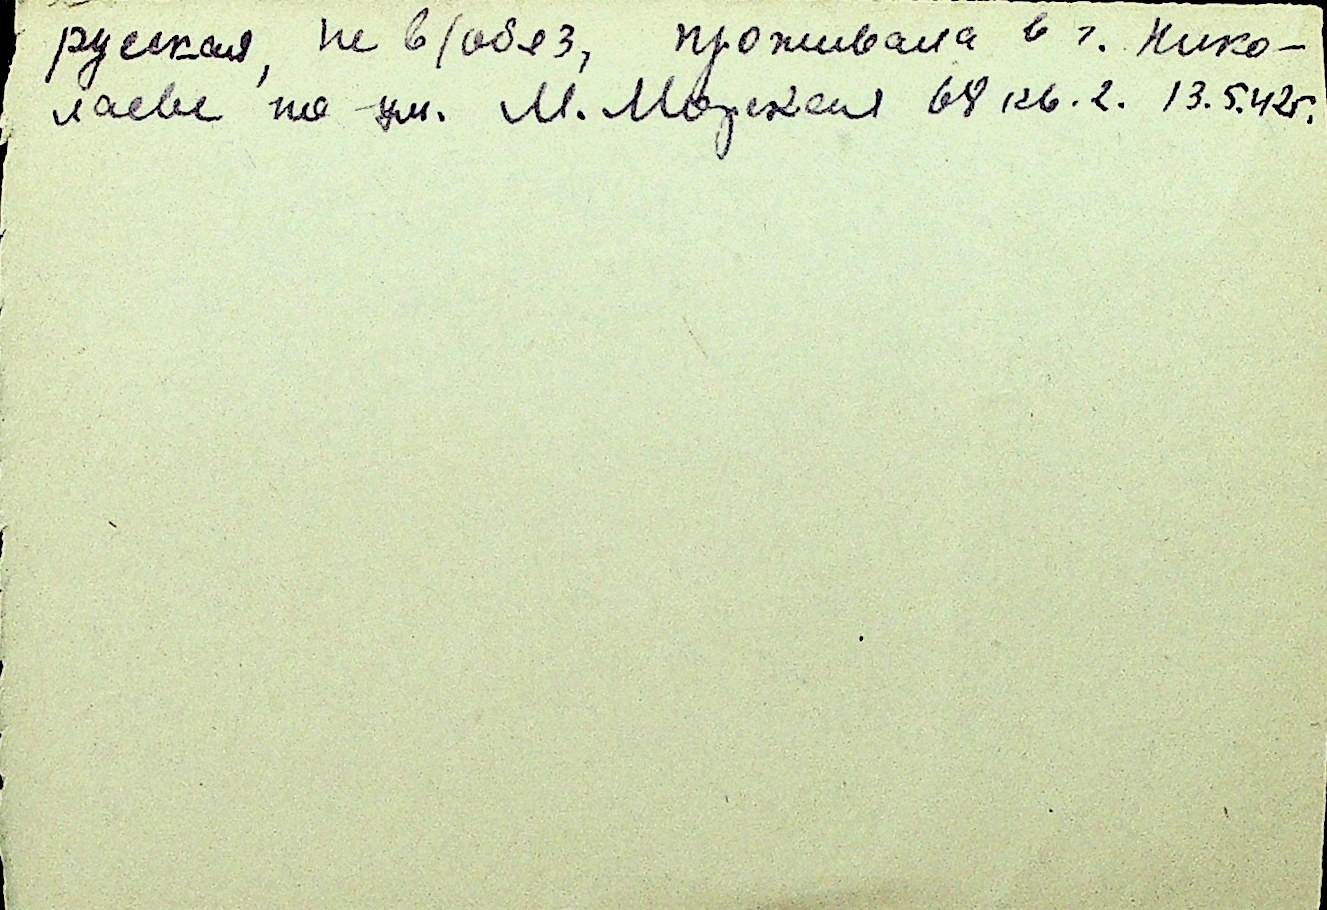 русская, не в/обяз, проживала в г. Нико-
лаеве по ул. М. Морская 68 кв. 2. 13.5.42г.